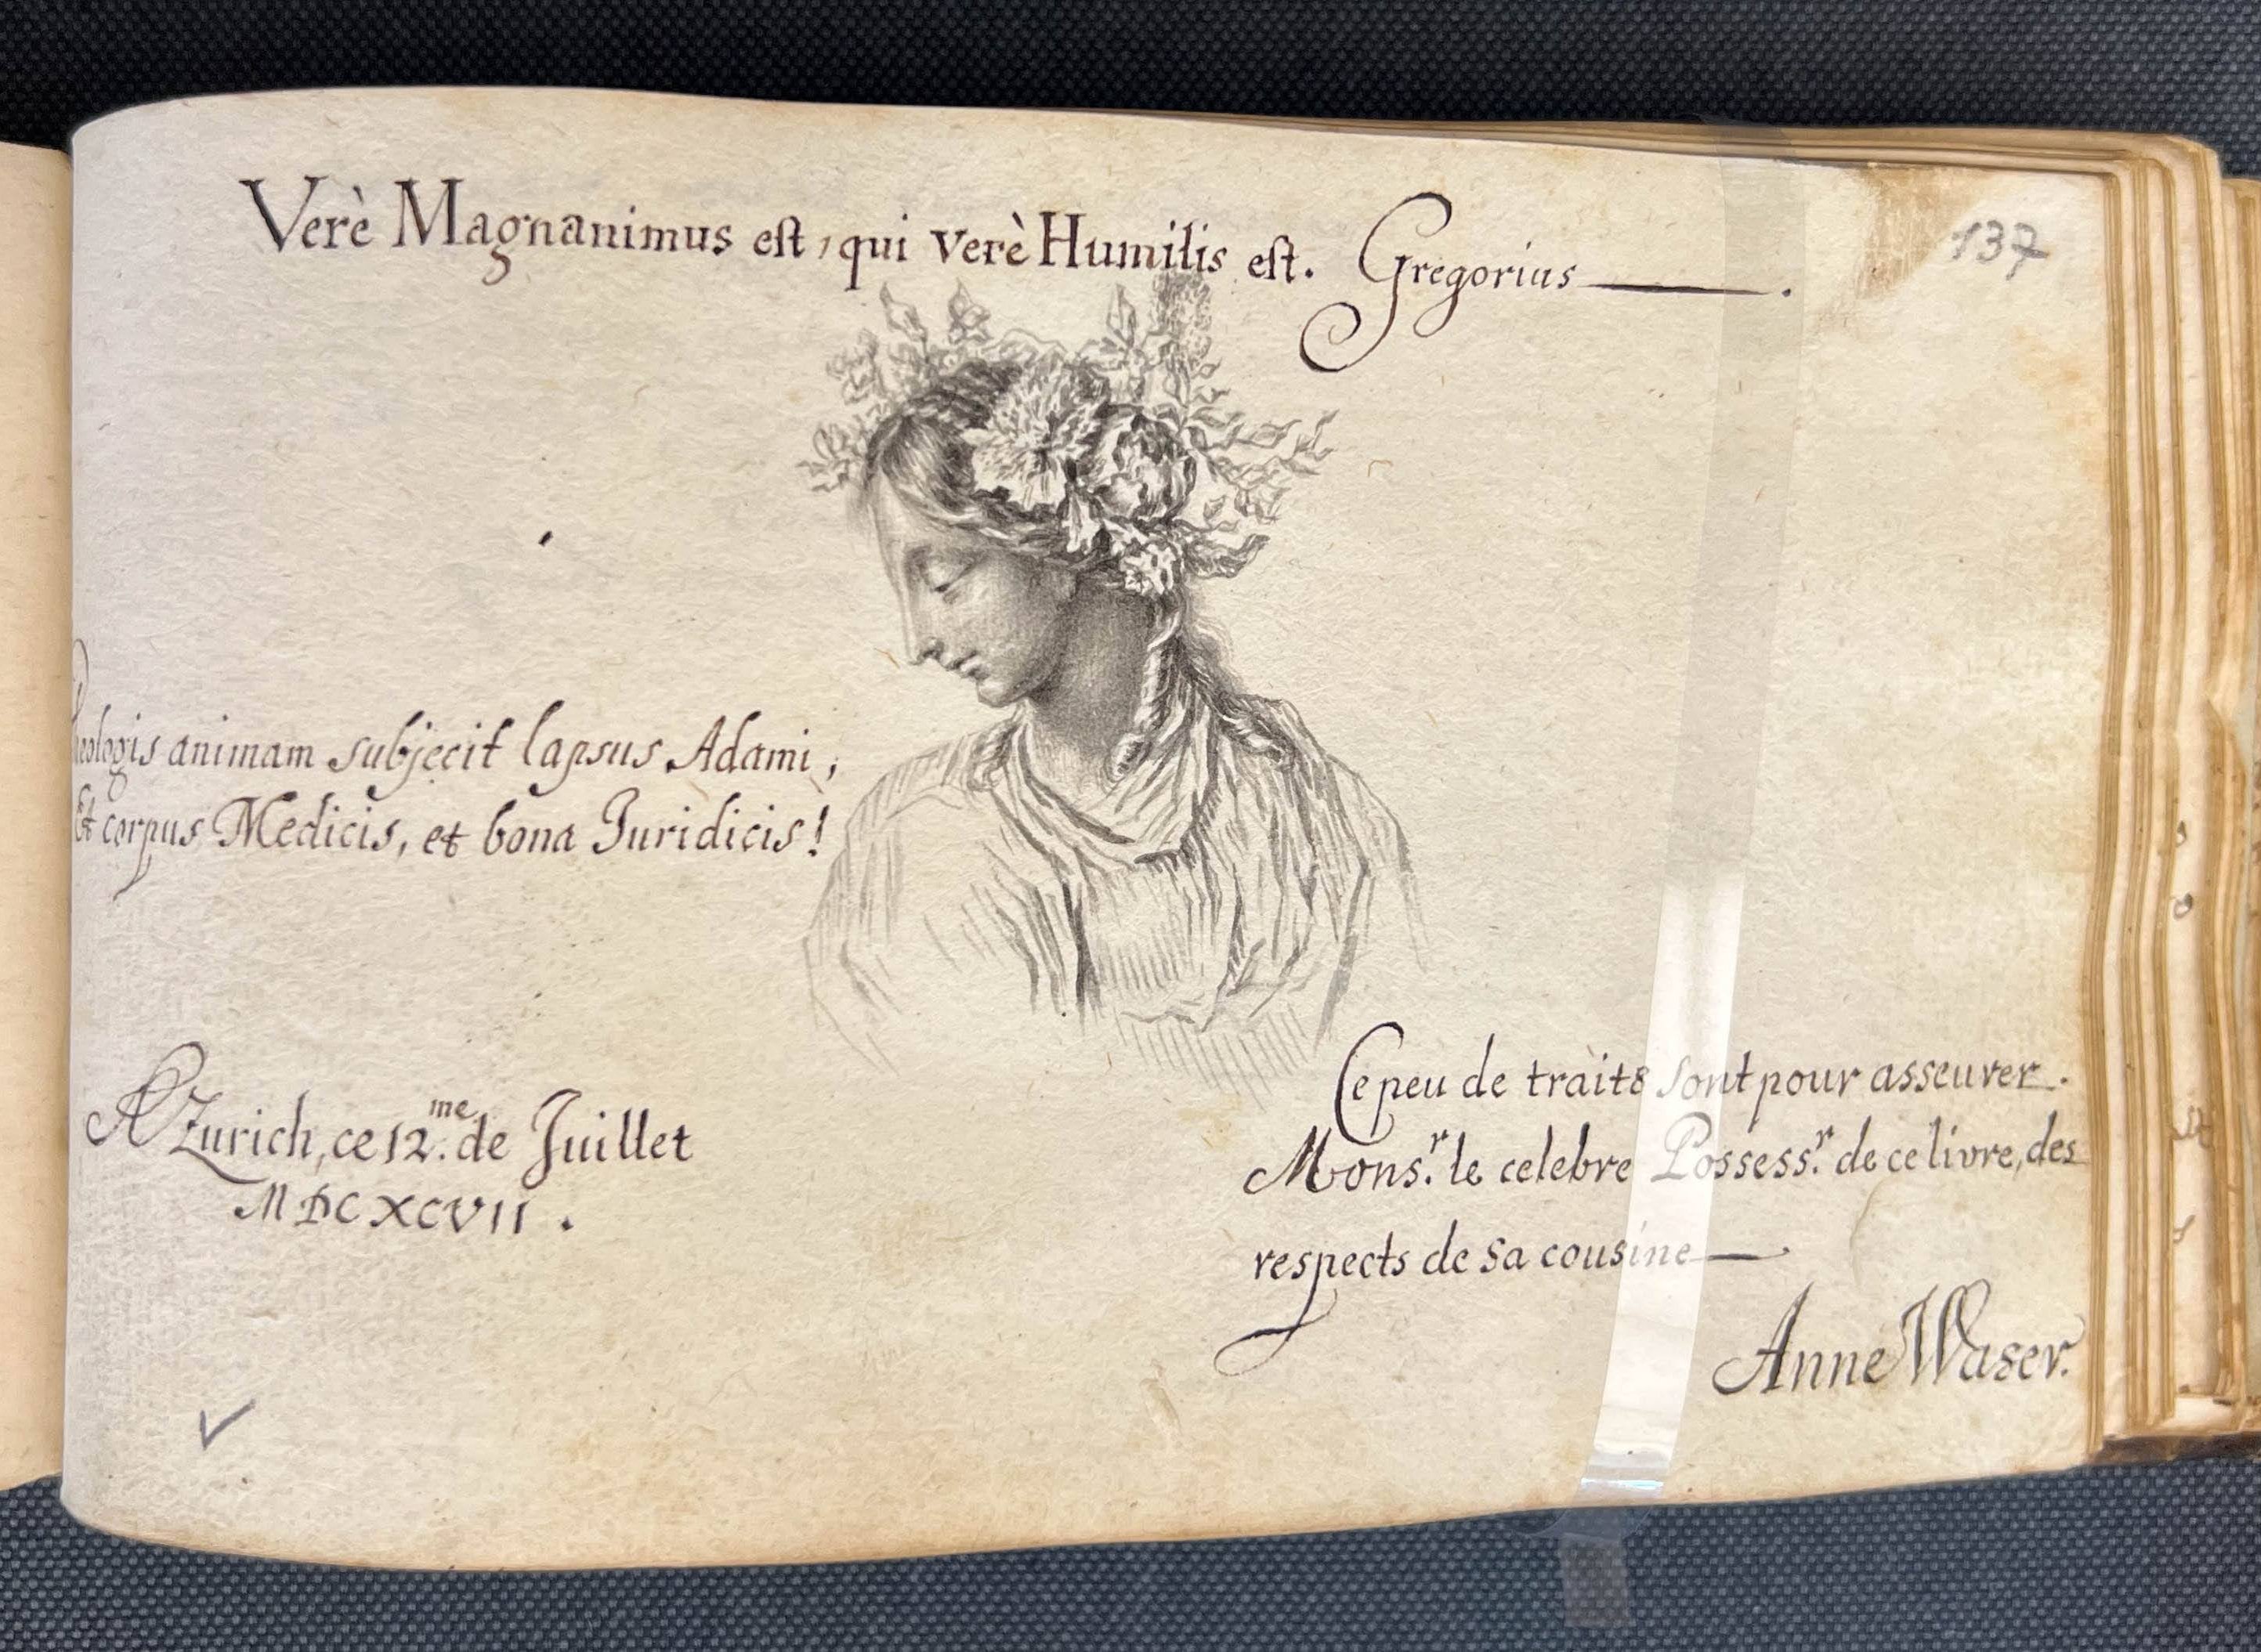 137
Verè Magnanimus est, qui verè Humilis est. Gregorius
Theologis animam subjecit lapsus Adami,
Et corpus Medicis, et bona Juridicis!
A Zurich, ce 12.me de Juillet
MDCXCVII.
Ce peu de traits sont pour asseurer
Mons.r le celebre Possess.r de ce livre, des
respects de sa cousine
Anne Waser.